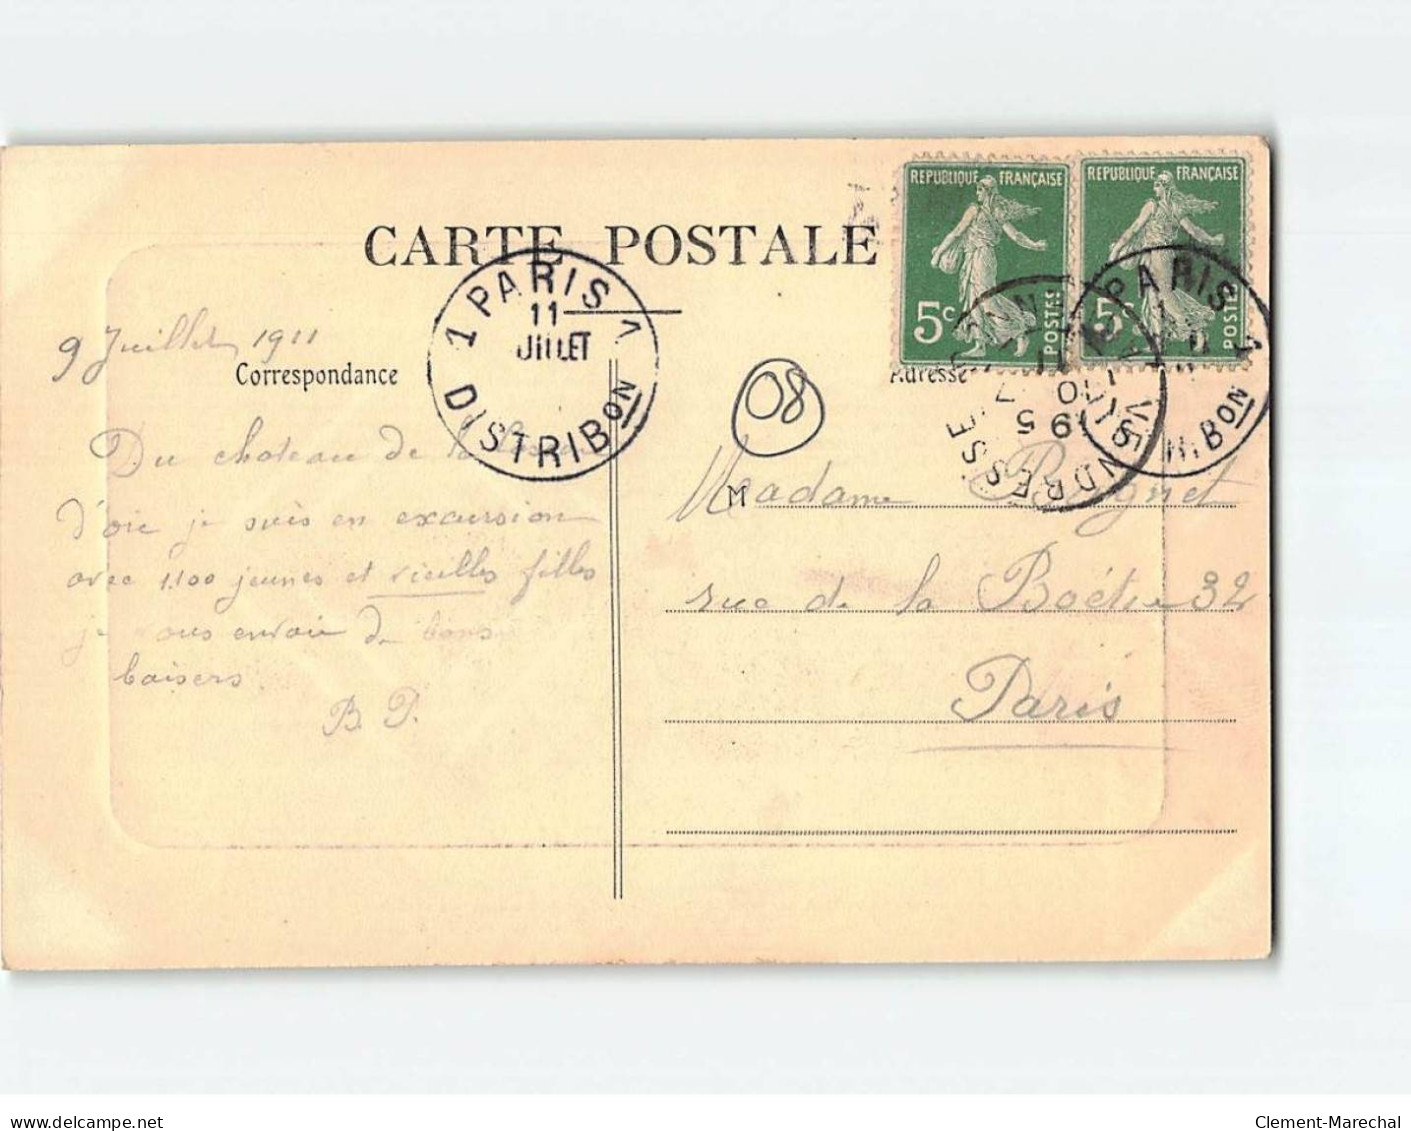 CARTE POSTALE
REPUBLIQUE FRANÇAISE
5c POSTES
REPUBLIQUE FRANÇAISE
5c POSTES
1 PARIS 1
11
JUILLET
DISTRIBON
PARIS 1
BON
9 Juillet 1911
Correspondance
Adresse
08
Du chateau de la
d'oie je suis en excursion
avec 1100 jeunes et vieilles filles
je vous envoie de bons
baisers
B. P.
M
Madame
rue de la Boétie 32
Paris
Clement-Marechal
delcampe.net